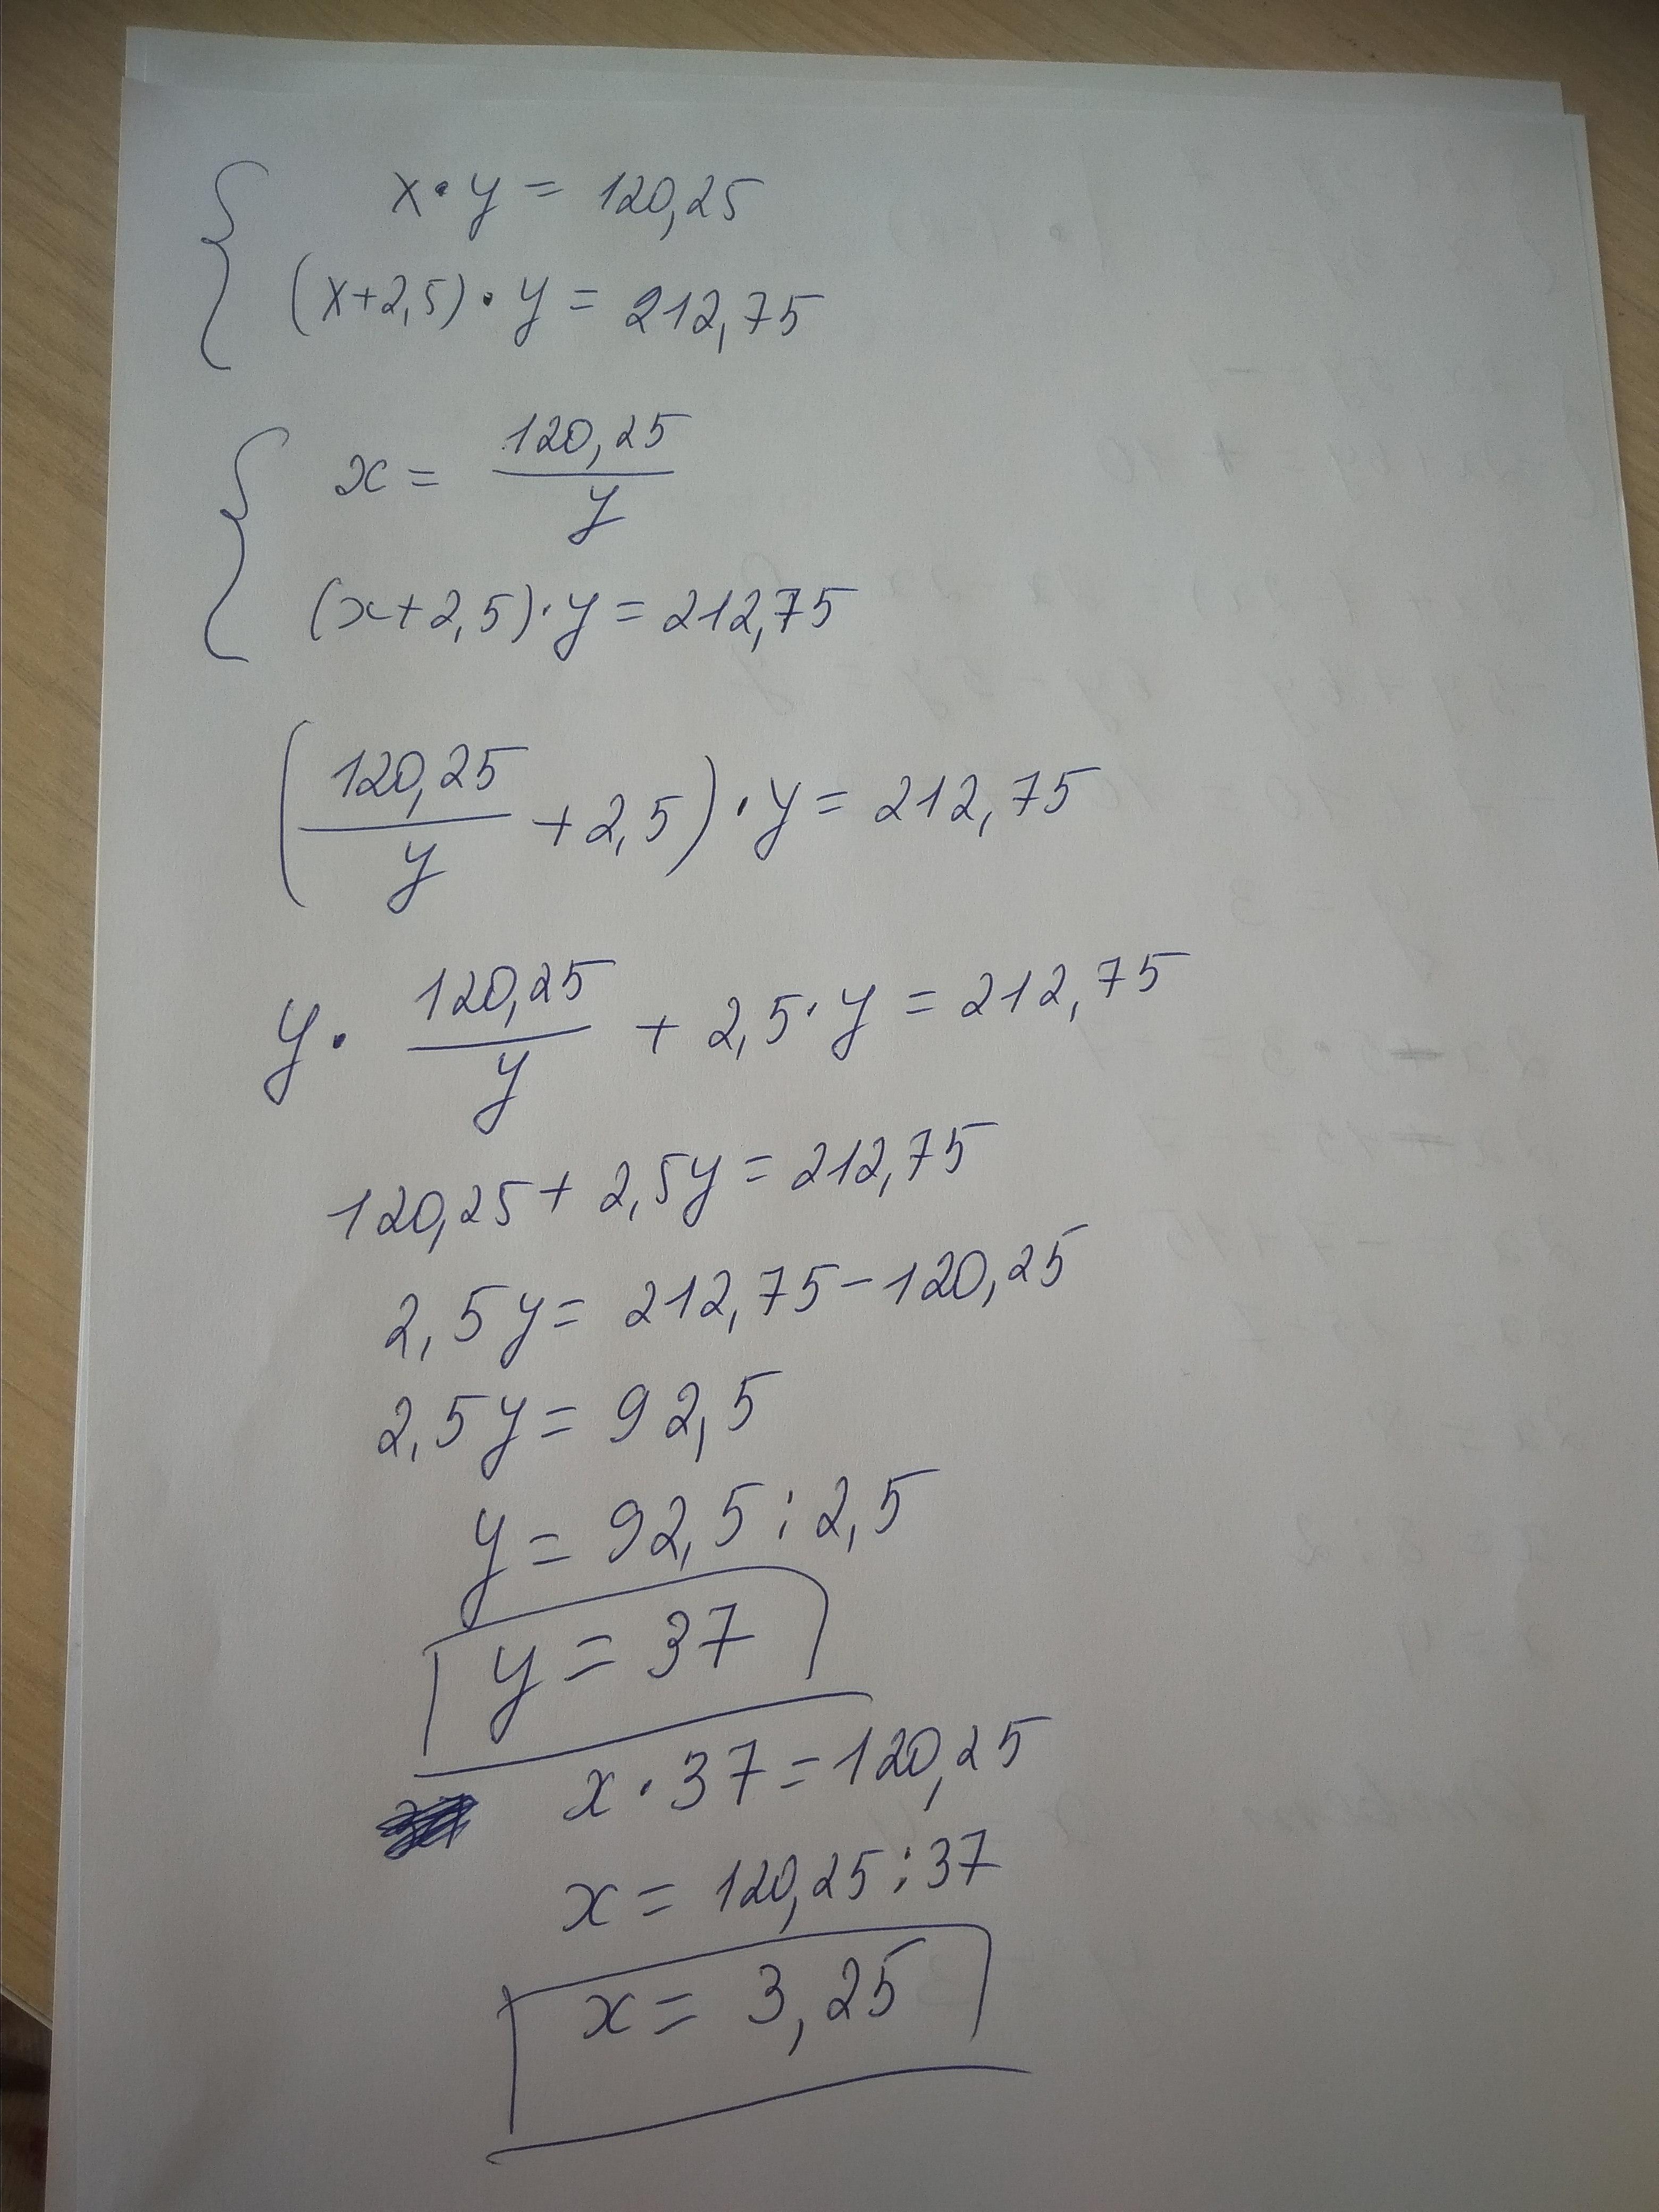 x·y = 120,25
(x+2,5)·y = 212,75
x = 120,25/y
(x+2,5)·y = 212,75
(120,25/y + 2,5)·y = 212,75
y· 120,25/y + 2,5·y = 212,75
120,25 + 2,5y = 212,75
2,5y = 212,75 - 120,25
2,5y = 92,5
y = 92,5 : 2,5
y = 37
x·37 = 120,25
x = 120,25 : 37
x = 3,25